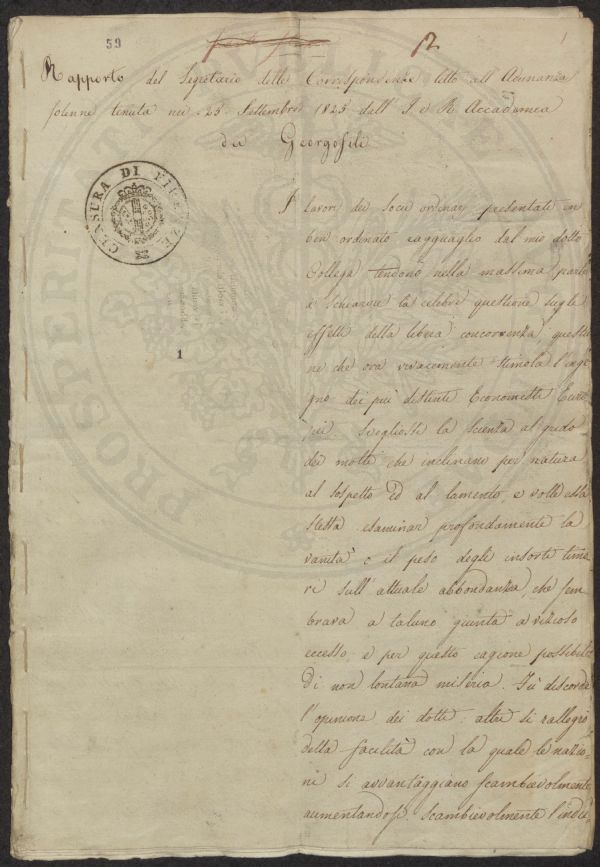 59
12
1
Rapporto del Segretario delle Corrispondenze letto all' Adunanza
solenne tenuta nei 25 Settembre 1825 dall' I e R Accademia
dei Georgofili
CENSURA DI FIRENZE
I lavori dei Socii ordinarj presentati in
ben ordinato ragguaglio dal mio dotto
Collega tendono nella massima parte
a schiarire la celebre questione sugli
effetti della libera concorrenza, questio
ne che ora vivacemente stimola l'inge
gno dei più distinti Economisti Euro
pei. Svegliosti la scienza al grido
dei molti che inclinano per natura
al sospetto ed al lamento, e volle essa
stessa esaminar profondamente la
vanità o il peso degli insorti timo
ri sull'attuale abbondanza, che sem
brava a taluno giunta a vizioso
eccesso, e per questo cagione possibile
di non lontana miseria. Fù discorde
l'opinione dei dotti: altri si rallegrò
della facilità con la quale le nazio
ni si avvantaggiano scambievolmente,
aumentandosi scambievolmente l'indu
1
PROSPERITATI